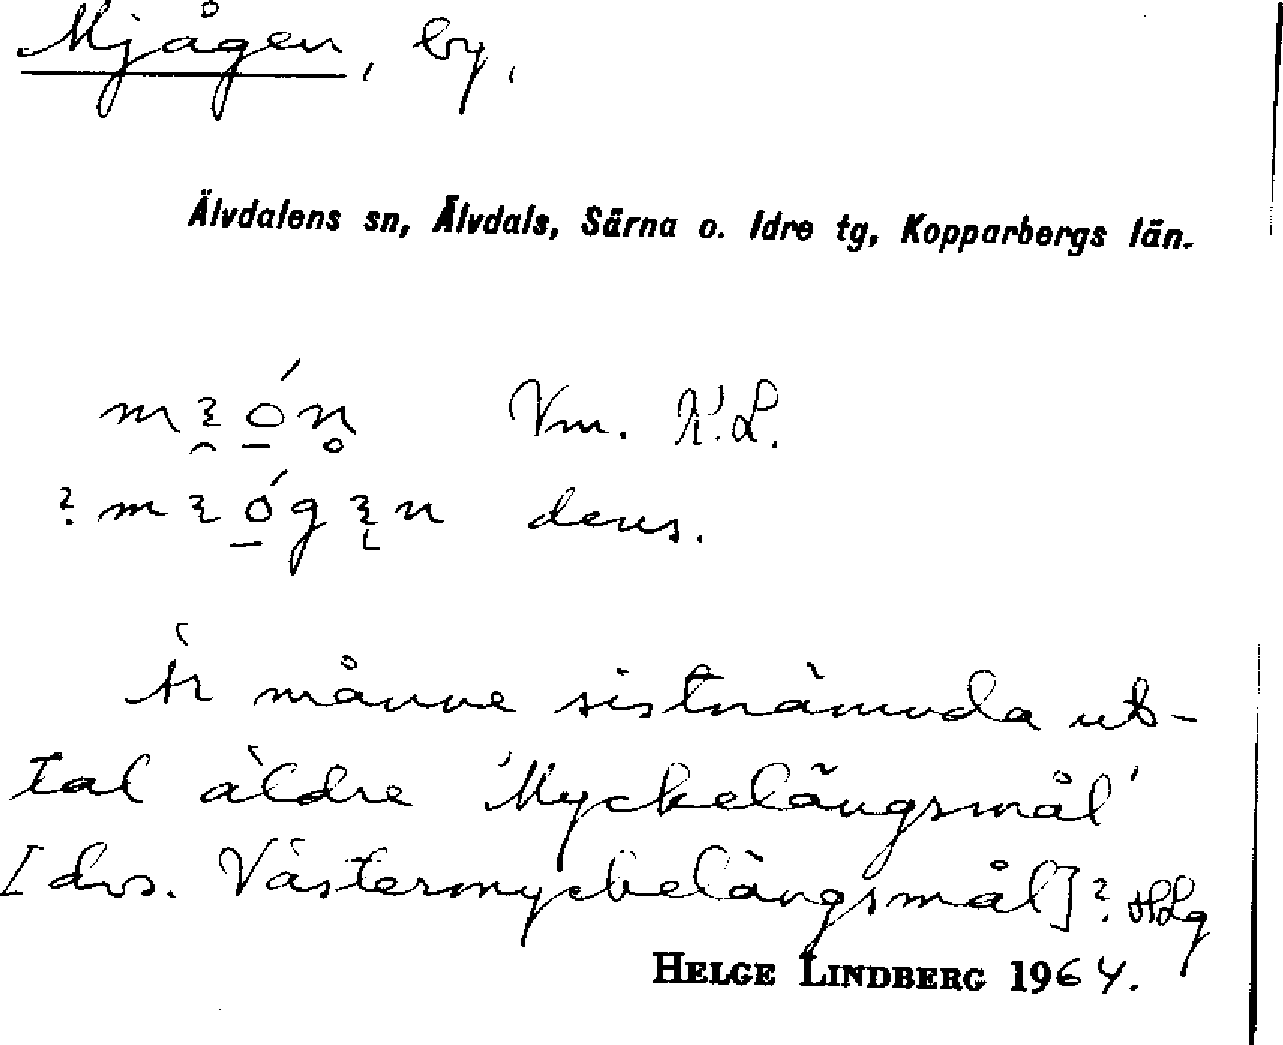 Mjågen, by.
Älvdalens sn, Älvdals, Särna o. Idre tg, Kopparbergs län.
Vm. K.L.
dens.
Är månne sistnämnda ut-
tal äldre 'Myckelängsmål'
[dvs. Västermyckelängsmål]? HLg
HELGE LINDBERG 1964.